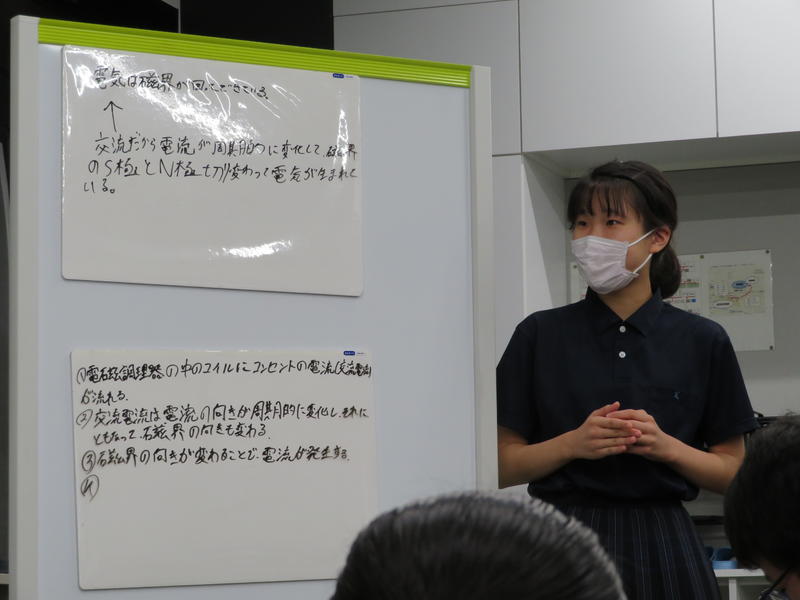 電気は磁界が回ってできている。
交流だから電流が周期的に変化して、磁界
のS極とN極も切り変わって電気が生まれて
いる。
①電磁調理器の中のコイルにコンセントの電流(交流電流)
が流れる。
②交流電流は電流の向きが周期的に変化し、それに
ともなって、磁界の向きも変わる。
③磁界の向きが変わることで、電流が発生する。
④